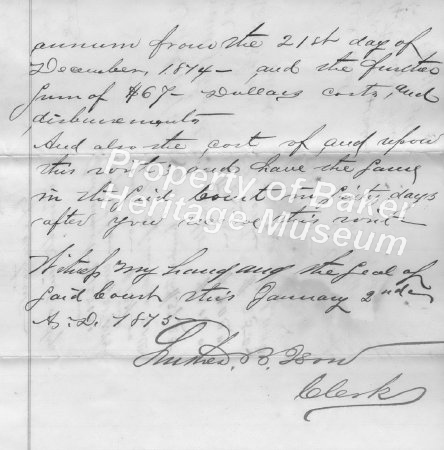 annum from the 21st day of
December, 1874 - and the further
Sum of $67- Dollars costs, and
disbursements
And also the cost of and upon
this writ and have the same
in the Said Court in Sixty days
after you receive this writ
Witness my hand and the Seal of
Said Court this January 2nd
A.D. 1875
Luther B. Ison
Clerk
Property of Baker
Heritage Museum